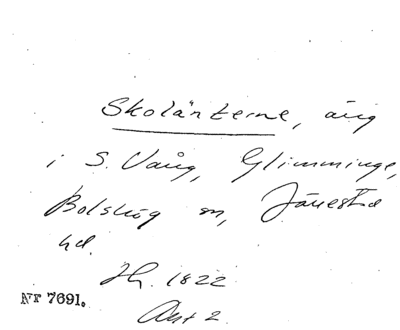 Skolänterne, äng
i S. Vång, Glimminge,
Bolshög sn, Järrestad
hd.
Jh. 1822
Akt 2.
Nr 7691.